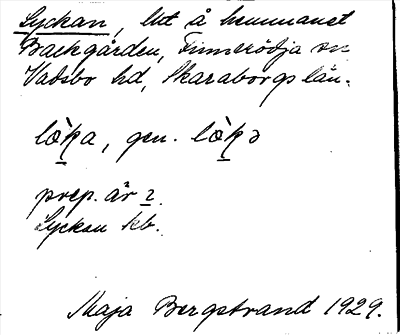 Lyckan, lht å hemmanet
Backgården, Finnerödja sn
Vadsbo hd, Skaraborgs län.
lö̀ka, gen. lö̀kə
prep. är 2.
Lyckan kb.
Maja Bergstrand 1929.